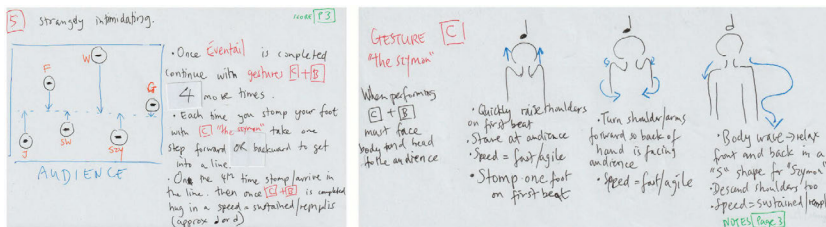 5 strangely intimidating.
NOTES P3
W
F
G
J
SW
SZY
AUDIENCE
• Once Éventail is completed
continue with gestures C + B
4 more times.
• Each time you stomp your foot
with C "the szymon" take one
step forward OR backward to get
into a line.
• On the 4th time stomp/arrive in
the line. then once C + B is completed
hug in a speed = sustained/
(approx or )
GESTURE C
"the szymon"
When performing
C + B
must face
body and head
to the audience
• Quickly raise shoulders
on first beat
• Stare at audience
• Speed = fast/agile
• Stomp one foot
on first beat
• Turn shoulder/arms
forward so back of
hand is facing
audience
• Speed = fast/agile
• Body wave → relax
front and back in a
"S" shape for "Szymon"
• Descend shoulders too
• Speed = sustained/
NOTES Page 3